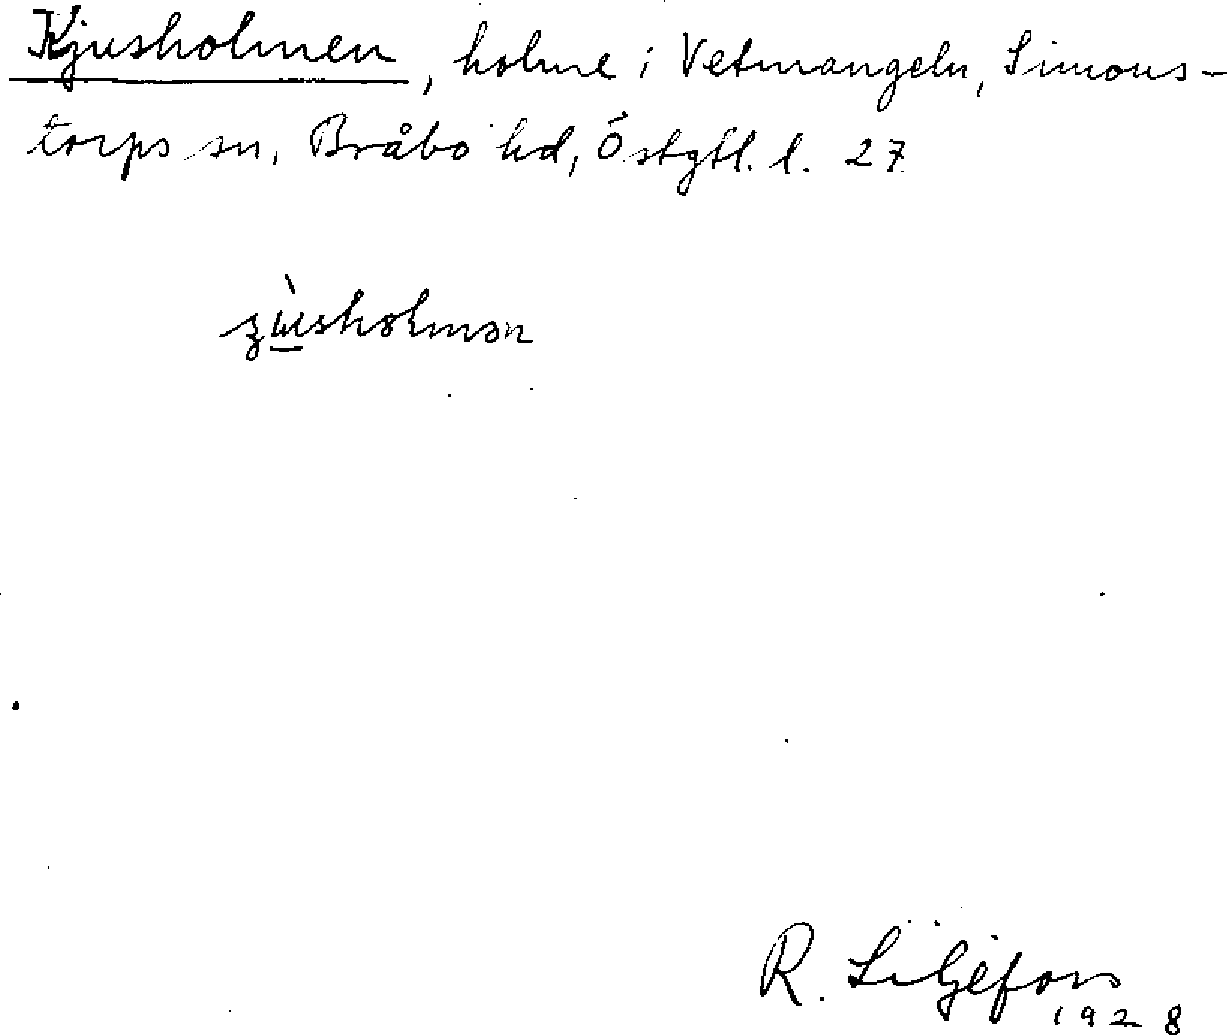 Kjusholmen, holme i Vetmangeln, Simons-
torps sn, Bråbo hd, Östgtl. l. 27
R. Liljefors
1928